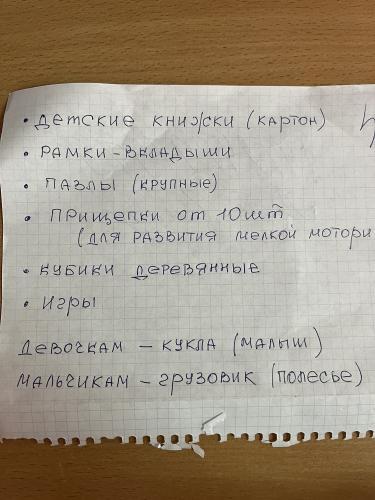 • Детские книжки (картон)
• Рамки-вкладыши
• Пазлы (крупные)
• Прищепки от 10 шт
(для развития мелкой мотори
• Кубики деревянные
• Игры
Девочкам – кукла (малыш)
Мальчикам – грузовик (Полесье)